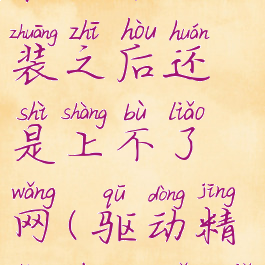 zhuāng zhī hòu huán
装之后还
shì shàng bù liǎo
是上不了
wǎng qū dòng jīng
网（驱动精